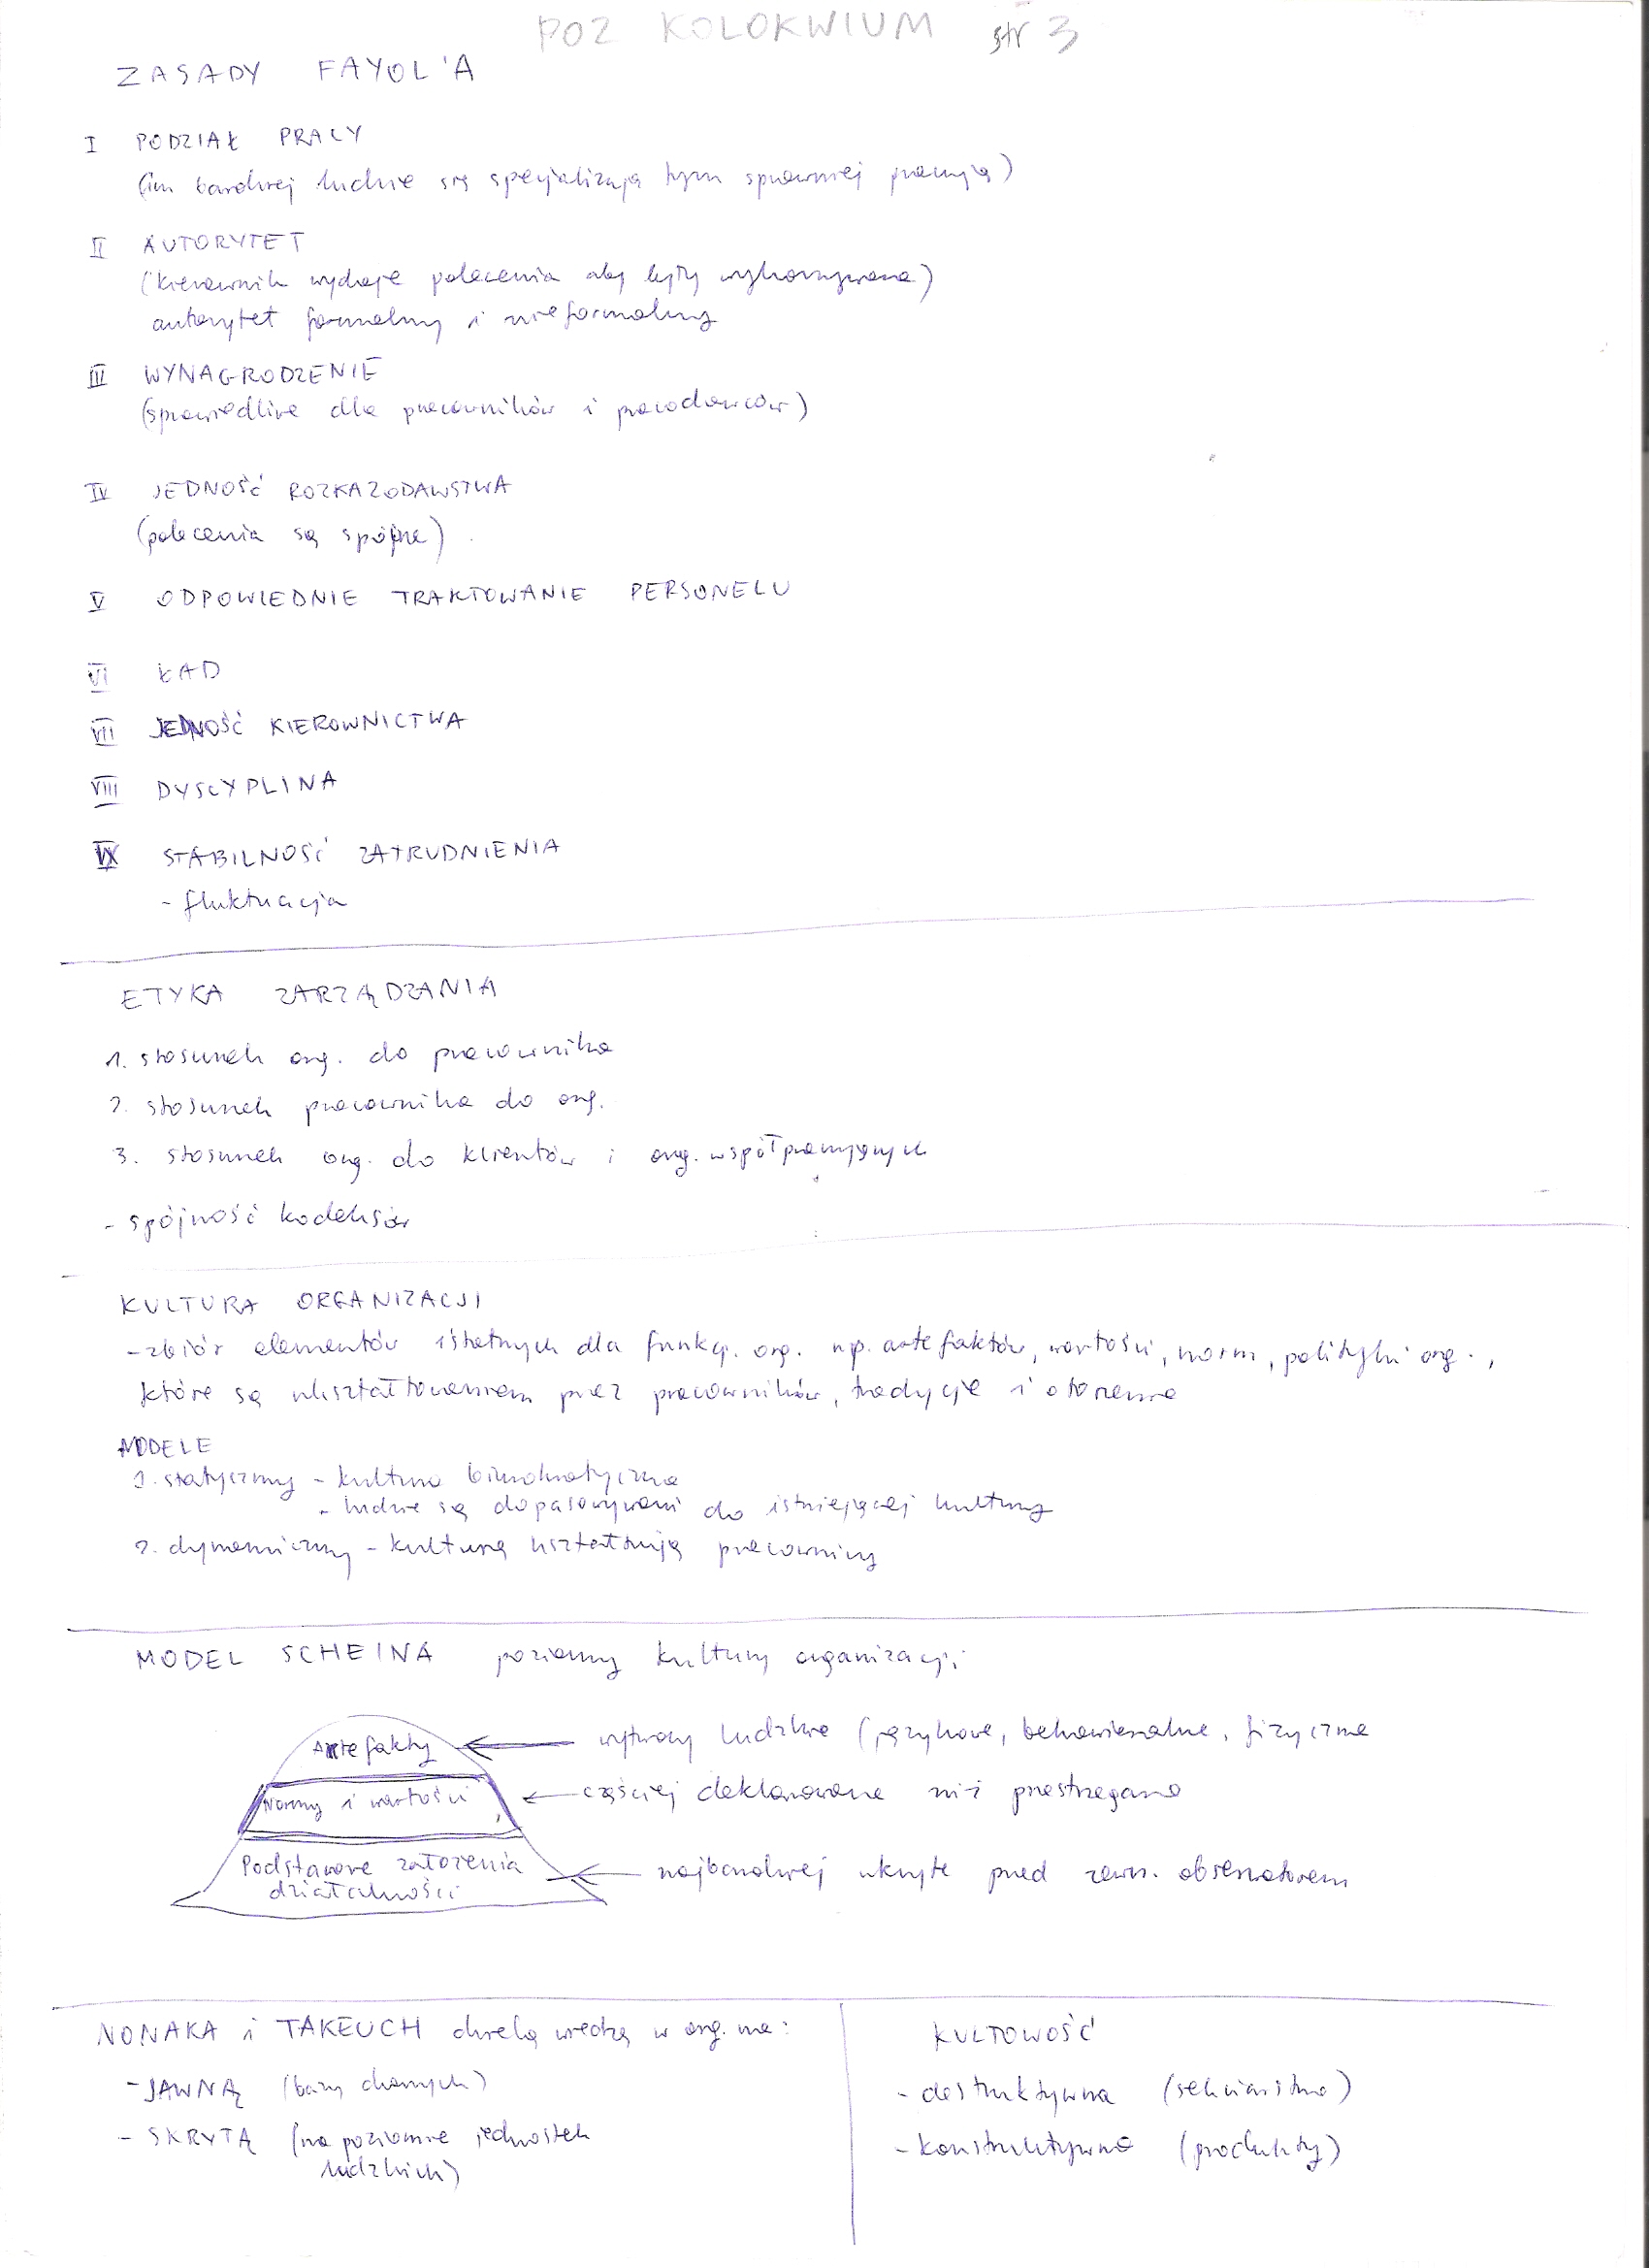 POZ KOLOKWIUM str 3
ZASADY FAYOL'A
I PODZIAŁ PRACY
(im bardziej ludzie się specjalizują tym sprawniej pracują)
II AUTORYTET
(kierownik wydaje polecenia aby były wykonywane)
autorytet formalny i nieformalny
III WYNAGRODZENIE
(sprawiedliwe dla pracowników i pracodawców)
IV JEDNOŚĆ ROZKAZODAWSTWA
(polecenia są spójne)
V ODPOWIEDNIE TRAKTOWANIE PERSONELU
VI ŁAD
VII JEDNOŚĆ KIEROWNICTWA
VIII DYSCYPLINA
IX STABILNOŚĆ ZATRUDNIENIA
- fluktuacja
ETYKA ZARZĄDZANIA
1. stosunek org. do pracownika
2. stosunek pracownika do org.
3. stosunek org. do klientów i org. współpracujących
- spójność kodeksów
KULTURA ORGANIZACJI
- zbiór elementów istotnych dla funkcj. org. np. artefaktów, wartości, norm, polityki org.,
które są ukształtowaniem przez pracowników, tradycje i otoczenie
MODELE
1. statyczny - kultura biurokratyczna
- ludzie są dopasowywani do istniejącej kultury
2. dynamiczny - kulturę kształtują pracownicy
MODEL SCHEINA poziomy kultury organizacji
Artefakty
wytwory ludzkie (językowe, behawioralne, fizyczne
Normy i wartości
częściej deklarowane niż przestrzegane
Podstawowe założenia
działalności
najbardziej ukryte przed zewn. obserwatorem
NONAKA i TAKEUCH dzielą wiedzę w org. na:
- JAWNĄ (bazy danych)
- SKRYTĄ (na poziomie jednostek
ludzkich)
KULTOWOŚĆ
- destruktywna (sekciarstwo)
- konstruktywna (produkty)